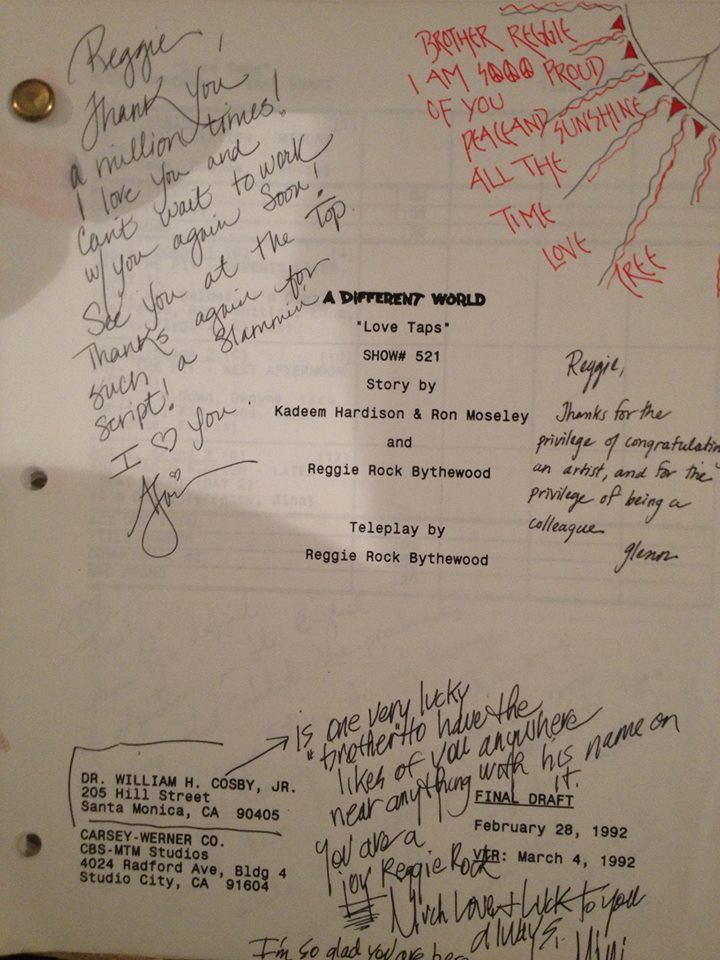 Reggie,
Thank you
a million times!
I love you and
can't wait to work
w/ you again soon!
See you at the Top.
Thanks again for
such a slammin
script!
I ♡ you.
BROTHER REGGIE
I AM SOOO PROUD
OF YOU
PEACE AND SUNSHINE
ALL THE
TIME
LOVE
TREE
A DIFFERENT WORLD
"Love Taps"
SHOW# 521
Story by
Kadeem Hardison & Ron Moseley
and
Reggie Rock Bythewood
Teleplay by
Reggie Rock Bythewood
Reggie,
Thanks for the
privilege of congratulatin
an artist, and for the
privilege of being a
colleague
glenn
DR. WILLIAM H. COSBY, JR.
205 Hill Street
Santa Monica, CA 90405
CARSEY-WERNER CO.
CBS-MTM Studios
4024 Radford Ave, Bldg 4
Studio City, CA 91604
is one very lucky
"brother" to have the
likes of you anywhere
near anything with his name on
it.
You are a
joy Reggie Rock
Much Love & Luck to you
always.
I'm so glad you are
FINAL DRAFT
February 28, 1992
VER: March 4, 1992